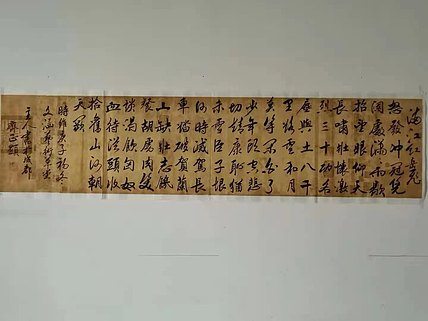 滿江紅 岳飛
怒發沖冠憑
闌處瀟雨歇
抬望眼仰天
長嘯壯懷激
烈三十功名
塵與土八千
里路雲和月
莫等閑白了
少年頭空悲
切靖康恥猶
未雪臣子恨
何時滅駕長
車踏破賀蘭
山缺壯志飢
餐胡虜肉笑
談渴飲匈奴
血待從頭收
拾舊山河朝
天闕
時維庚子初冬
文涵藝術
主人書於成都